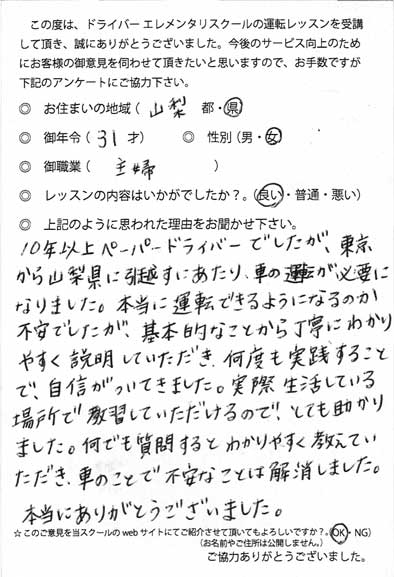 この度は、ドライバー エレメンタリスクールの運転レッスンを受講
して頂き、誠にありがとうございました。今後のサービス向上のため
にお客様の御意見を伺わせて頂きたいと思いますので、お手数ですが
下記のアンケートにご協力下さい。
◎ お住まいの地域（山梨 都・県）
◎ 御年令（31才） ◎ 性別（男・女）
◎ 御職業（ 主婦 ）
◎ レッスンの内容はいかがでしたか？。（良い・普通・悪い）
◎ 上記のように思われた理由をお聞かせ下さい。
10年以上ペーパードライバーでしたが、東京
から山梨県に引越すにあたり、車の運転が必要に
なりました。本当に運転できるようになるのか
不安でしたが、基本的なことから丁寧にわかり
やすく説明していただき、何度も実践すること
で、自信がついてきました。実際生活している
場所で教習していただけるので、とても助かり
ました。何でも質問するとわかりやすく教えてい
ただき、車のことで不安なことは解消しました。
本当にありがとうございました。
☆このご意見を当スクールのwebサイトにてご紹介させて頂いてもよろしいですか？。（OK・NG）
（お名前やご住所は公開しません。）
ご協力ありがとうございました。